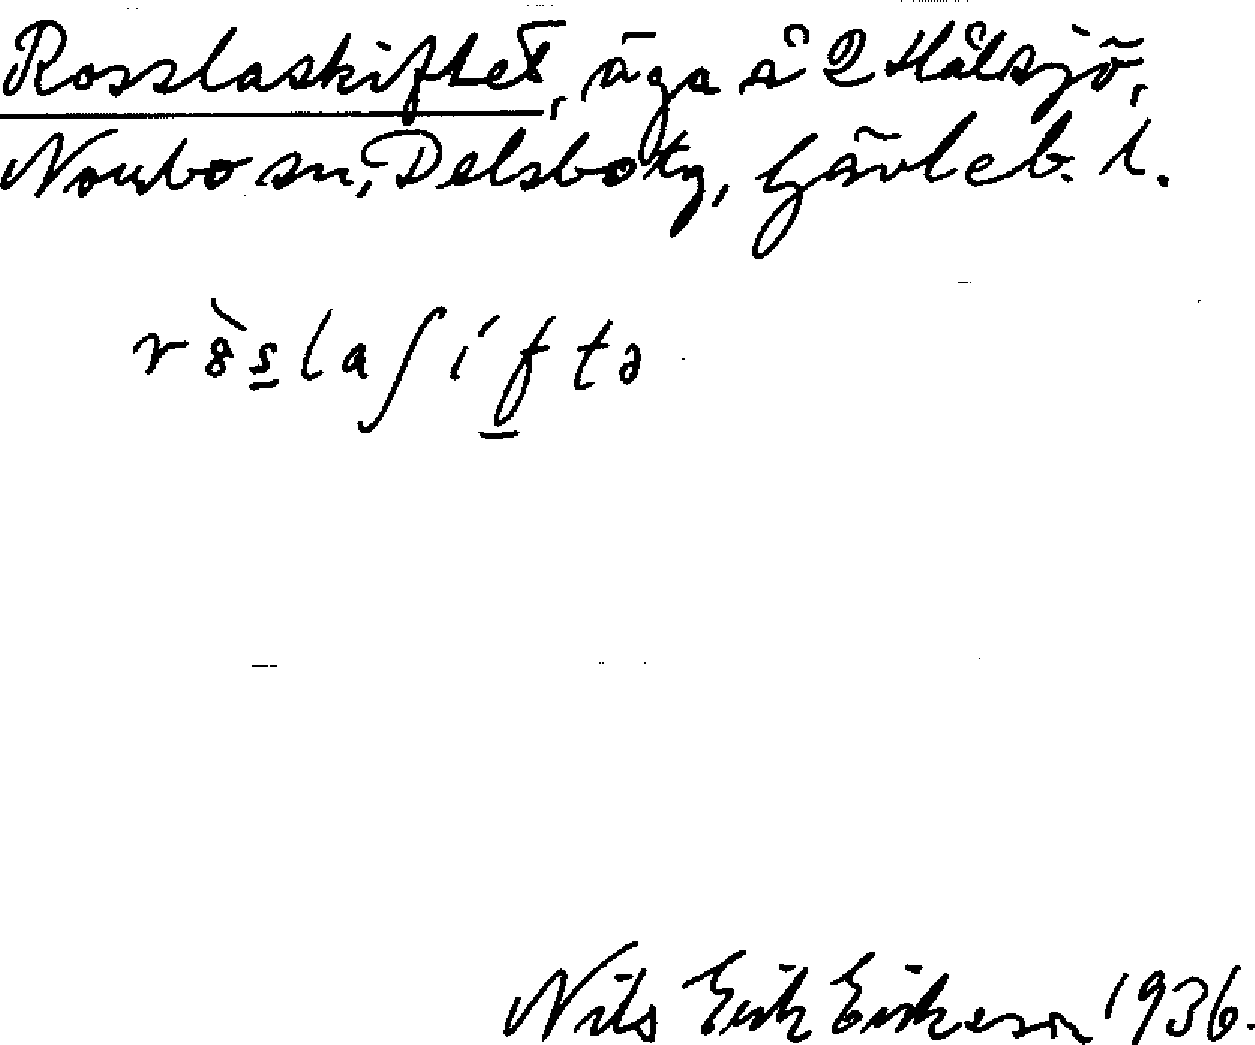 Rosslaskiftet, äga å 2 Hålsjö,
Norrbo sn, Delsbo tg, Gävleb. l.
r8̀s̲laʃif̲tə
Nils Erik Erikeson 1936.